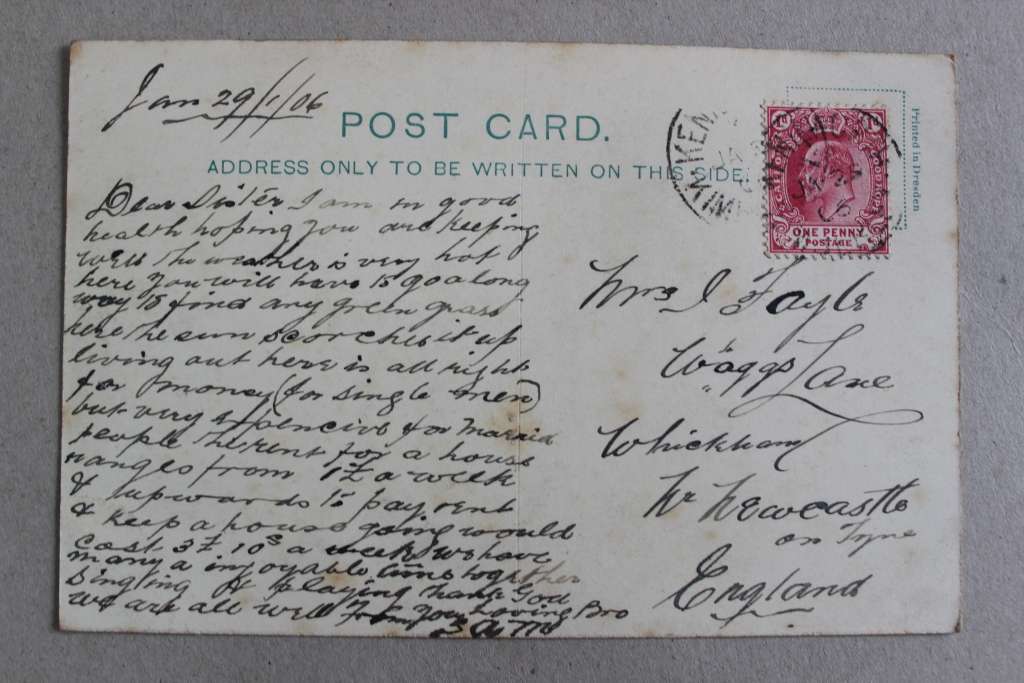 Jan 29/1/06
POST CARD.
ADDRESS ONLY TO BE WRITTEN ON THIS SIDE.
Printed in Dresden
CAPE OF GOOD HOPE
ONE PENNY
POSTAGE
Dear Sister I am in good
health hoping you are keeping
well the weather is very hot
here you will have to go along
way to find any green grass
here the sun scorches it up
living out here is all right
for money (for single men)
but very expencive for married
people the rent for a house
ranges from 1£ a week
& upwards to pay rent
& keep a house going would
cost 3£ 10s a week we have
many a injoyable time together
singing & playing thank God
we are all well from your Loving Bro
Mrs J Fayle
Waggs Lane
Whickham
Nr Newcastle
on Tyne
England